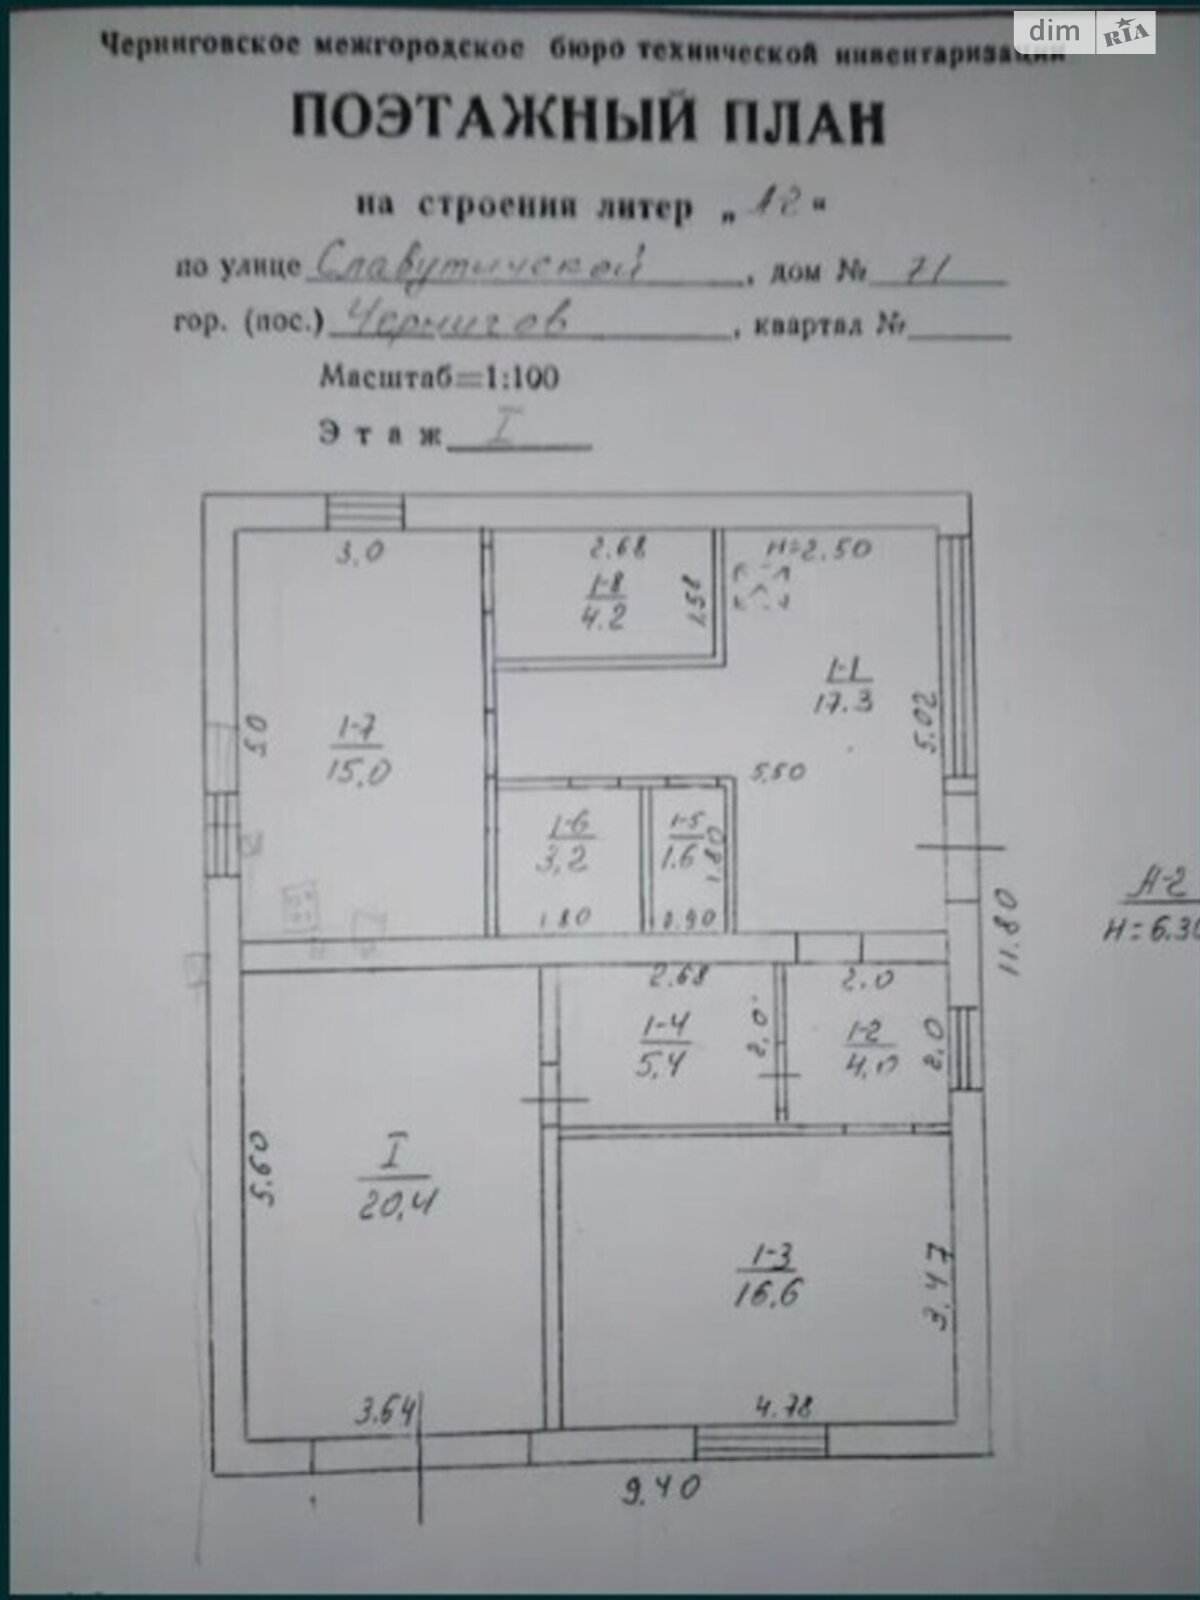 dim RIA
Черниговское межгородское бюро технической инвентаризации
ПОЭТАЖНЫЙ ПЛАН
на строения литер „12“
по улице Славутической, дом № 71
гор. (пос.) Чернигов, квартал №
Масштаб=1:100
Этаж I
3,0
2.68
H=2.50
1-8
4.2
1.58
1-1
17.3
5.02
5.0
1-7
15,0
5,50
1-6
3,2
1-5
1.6
1.80
1.80
0.90
11.80
А-2
H=6.30
2.68
2.0
1-4
5,4
2,0
1-2
4,0
2.0
5.60
I
20,4
1-3
16,6
3.47
3.64
4.78
9.40